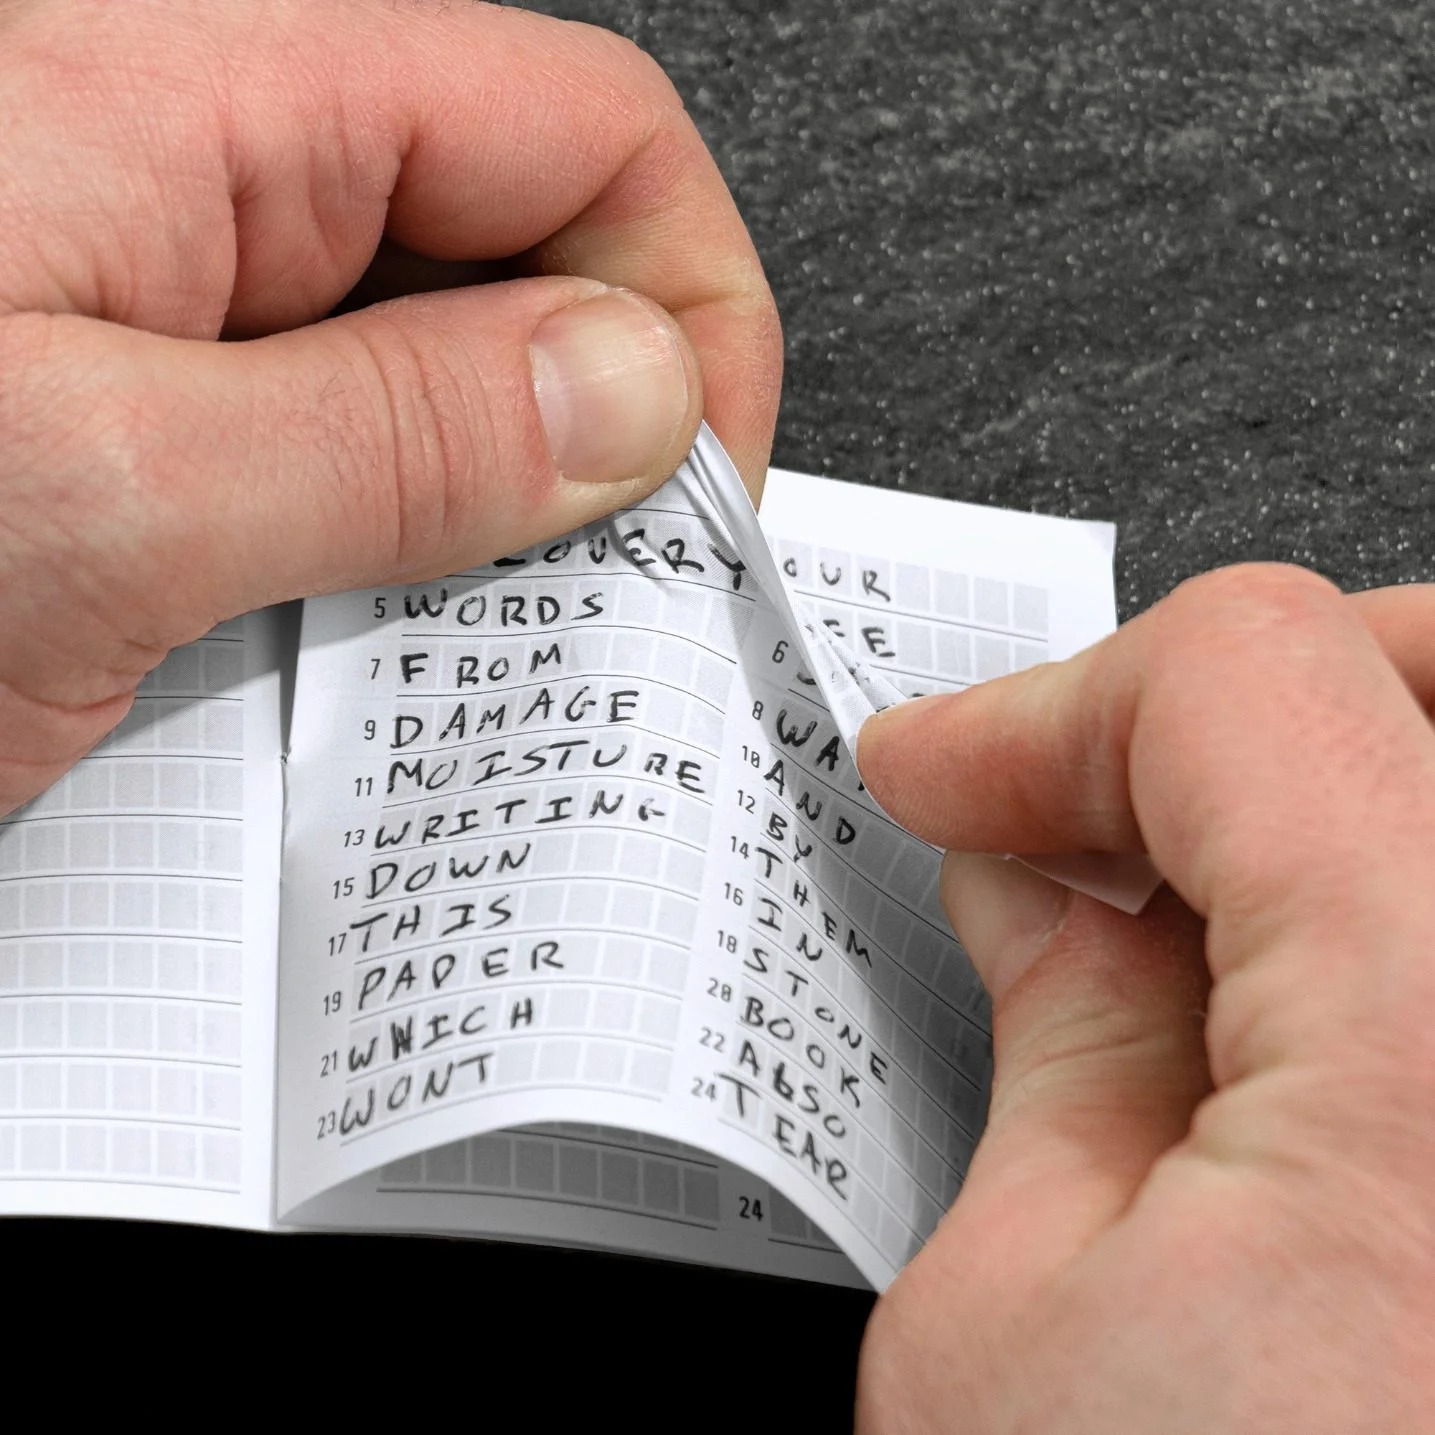 OVERY OUR
5 WORDS 6
7 FROM 8 WA
9 DAMAGE 10 AND
11 MOISTURE 12 BY
13 WRITING 14 THEM
15 DOWN 16 IN
17 THIS 18 STONE
19 PAPER 20 BOOK
21 WHICH 22 AbSO
23 WONT 24 TEAR
24